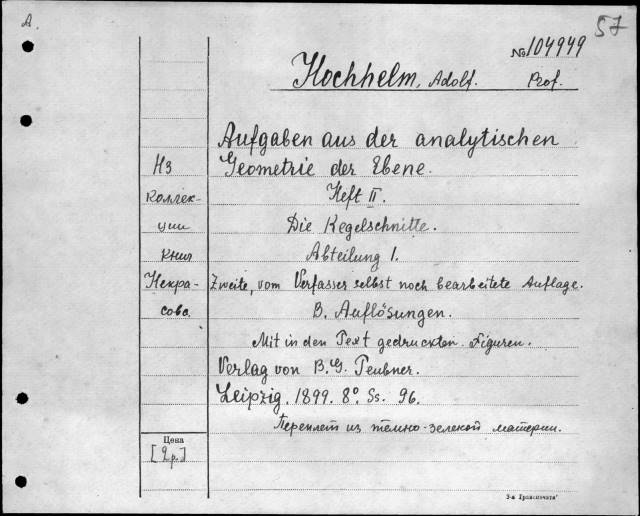 A.
57
№ 104949
Hochhelm, Adolf. Prof.
Aufgaben aus der analytischen
Geometrie der Ebene.
Heft II.
Die Kegelschnitte.
Abteilung 1.
Zweite, vom Verfasser selbst noch bearbeitete Auflage.
B. Auflösungen.
Mit in den Text gedruckten Figuren.
Verlag von B.G. Teubner.
Leipzig. 1899. 8° Ss. 96.
Переплет из тёмно-зеленой материи.
Из
коллек-
ции
книг
Некра-
сова.
Цена
[2 р.]